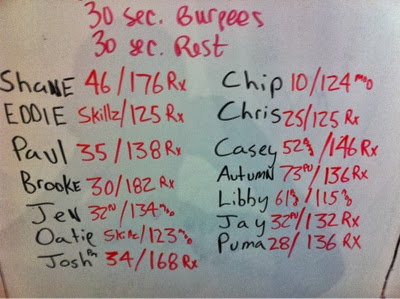 30 sec. Burpees
30 sec. Rest
Shane 46/176 Rx
EDDIE Skillz/125 Rx
Paul 35/138 Rx
Brooke 30/182 Rx
Jen 32 /134
Oatie Skillz/123
Josh 34/168 Rx
Chip 10/124
Chris 25/125 Rx
Casey 52 /146 Rx
Autumn 73 /136 Rx
Libby 61 /115
Jay 32 /132 Rx
Puma 28/ 136 Rx